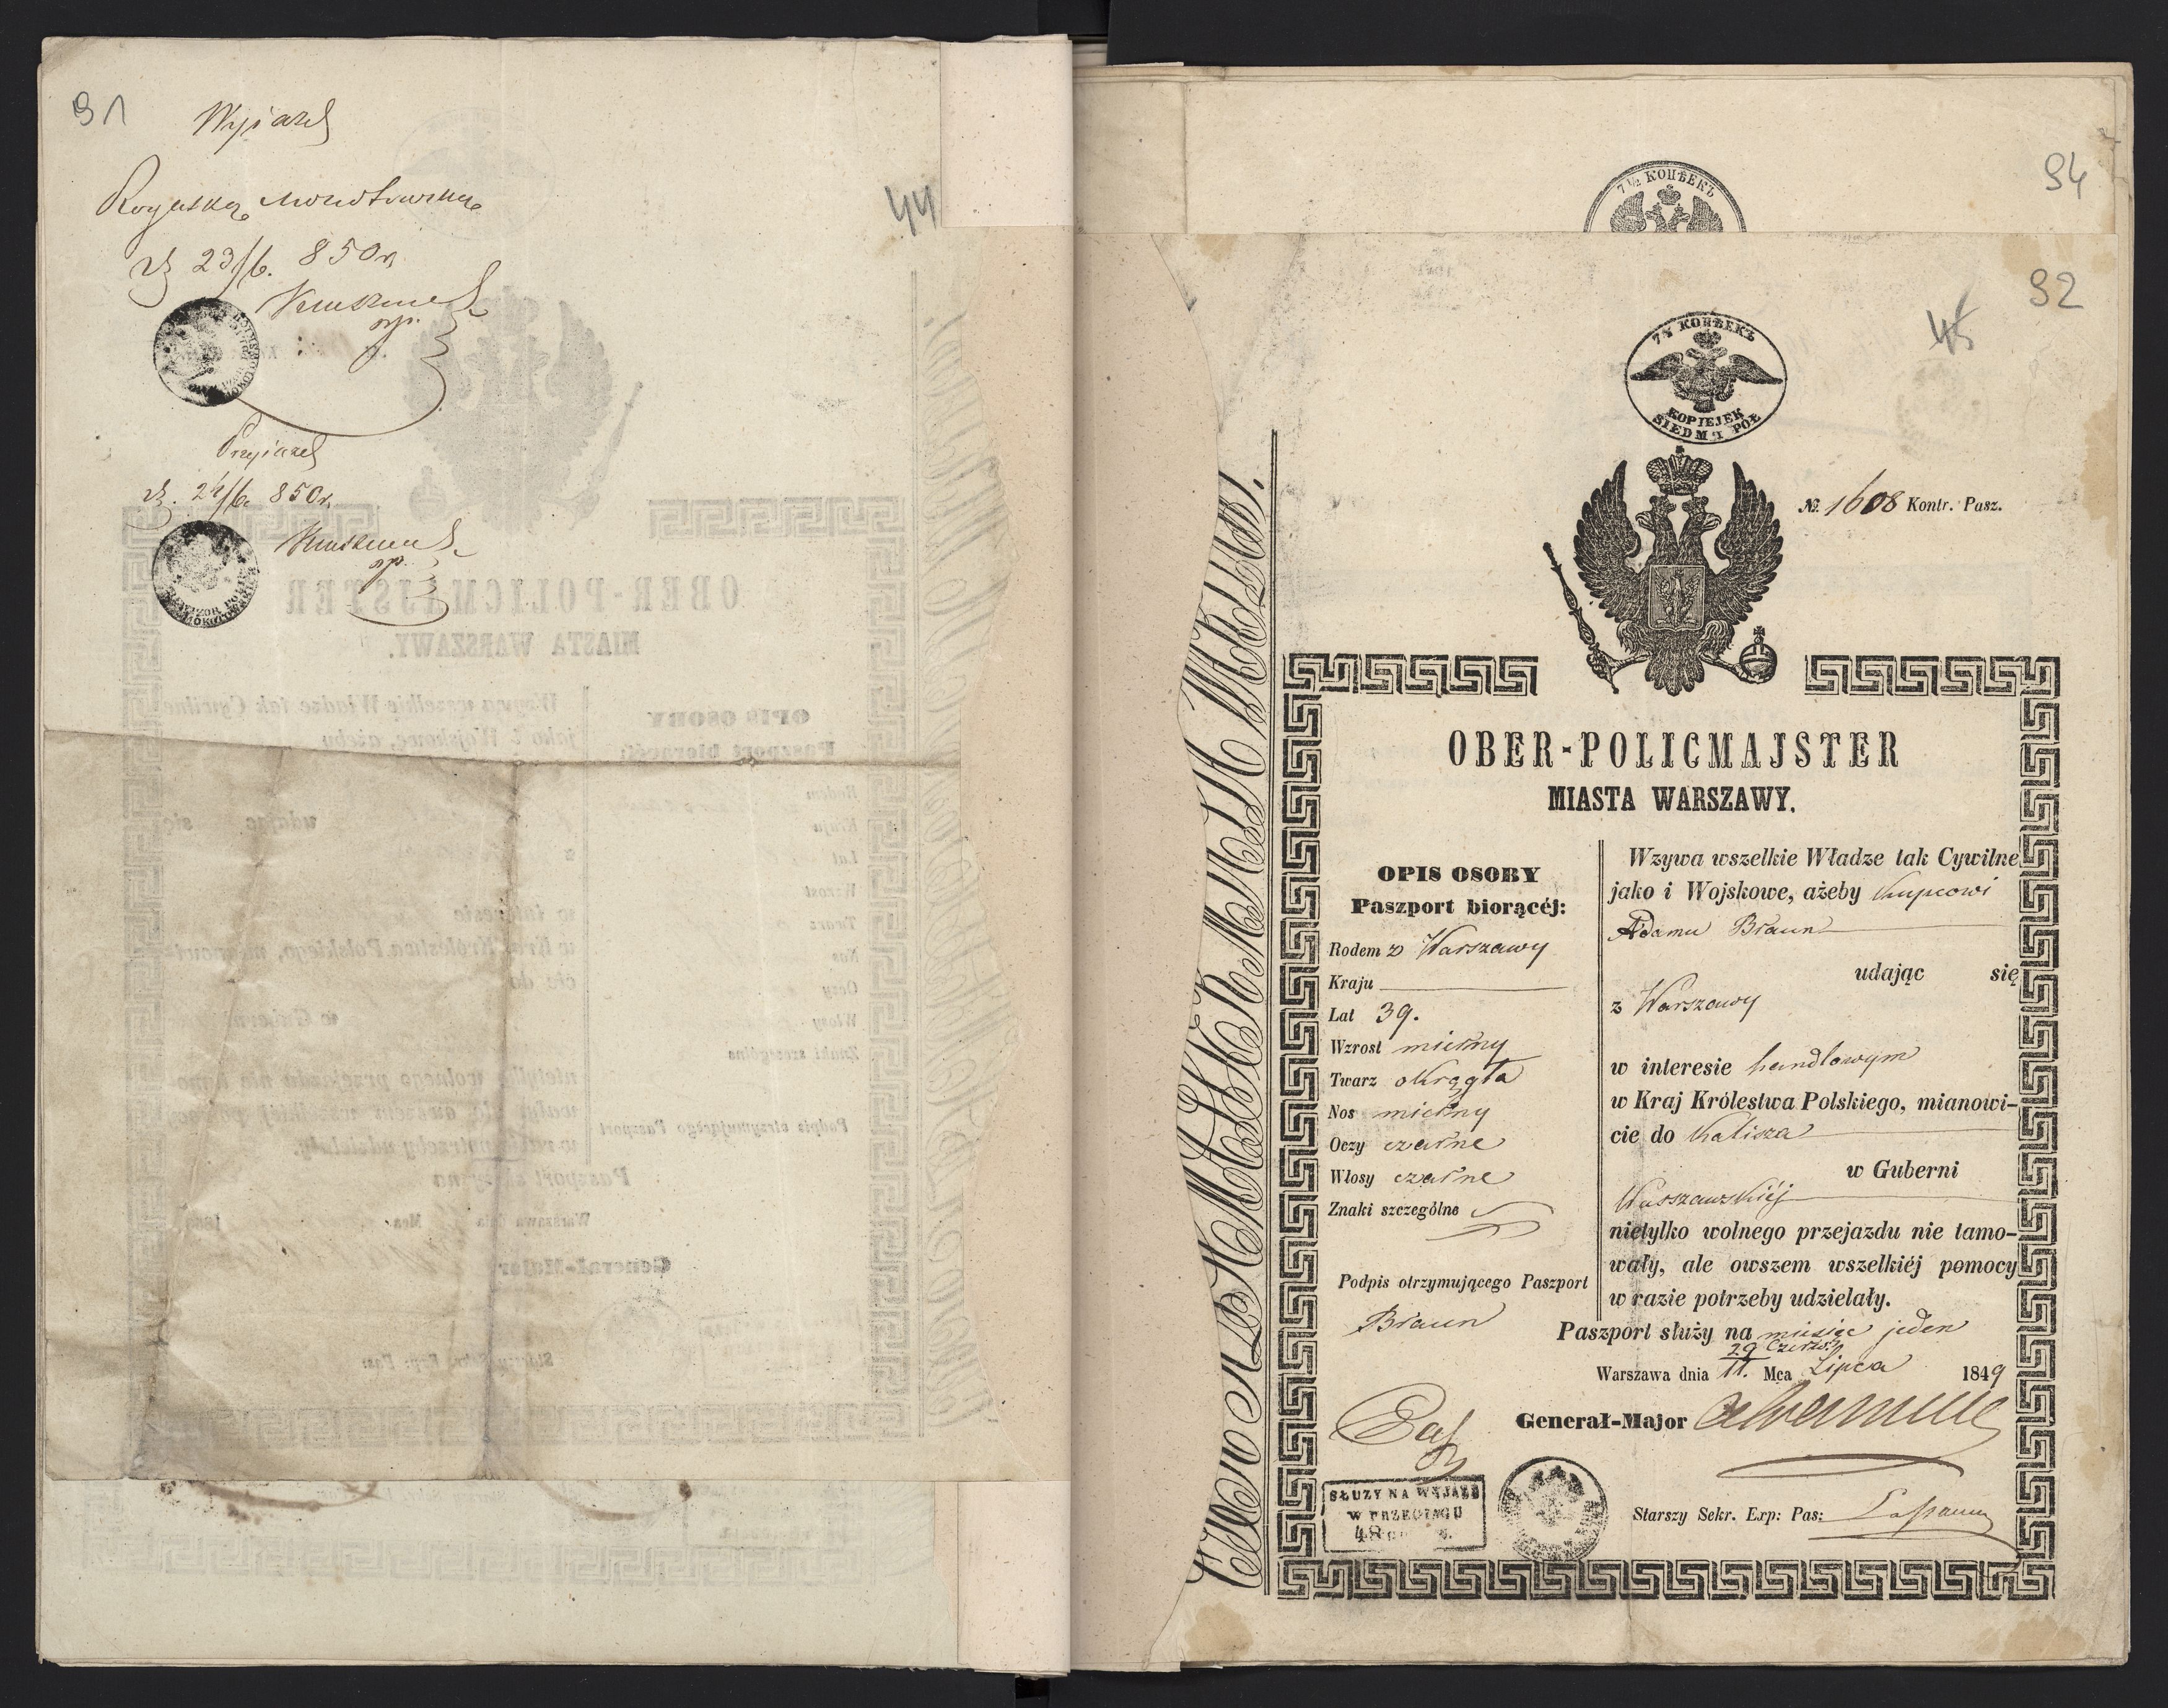 91
Wyjazd
Rogatka Mokotowska
d. 23/6. 850 r.
44
Przyjazd
d. 24/6. 850 r.
94
7 1/2 КОПѢЕКЪ
92
45
7 1/2 КОПѢЕКЪ
KOPIEJEK
SIEDM I PÓŁ
№ 1608 Kontr. Pasz.
OBER-POLICMAJSTER
MIASTA WARSZAWY.
OPIS OSOBY
Paszport biorącéj:
Rodem z Warszawy
Kraju
Lat 39.
Wzrost mierny
Twarz okrągła
Nos mierny
Oczy czarne
Włosy czarne
Znaki szczególne
Podpis otrzymującego Paszport
Braun
Wzywa wszelkie Władze tak Cywilne
jako i Wojskowe, ażeby Kupcowi
Adamu Braun
udając się
z Warszawy
w interesie handlowym
w Kraj Królestwa Polskiego, mianowi-
cie do Kalisza
w Guberni
Warszawskiéj
nietylko wolnego przejazdu nie tamo-
wały, ale owszem wszelkiéj pomocy
w razie potrzeby udzielały.
Paszport służy na miesiąc jeden
29 Czerw.
Warszawa dnia 11. Mca Lipca 1849
Generał-Major
SŁUZY NA WYJAZD
W PRZECIĄGU
48
Starszy Sekr. Exp: Pas: